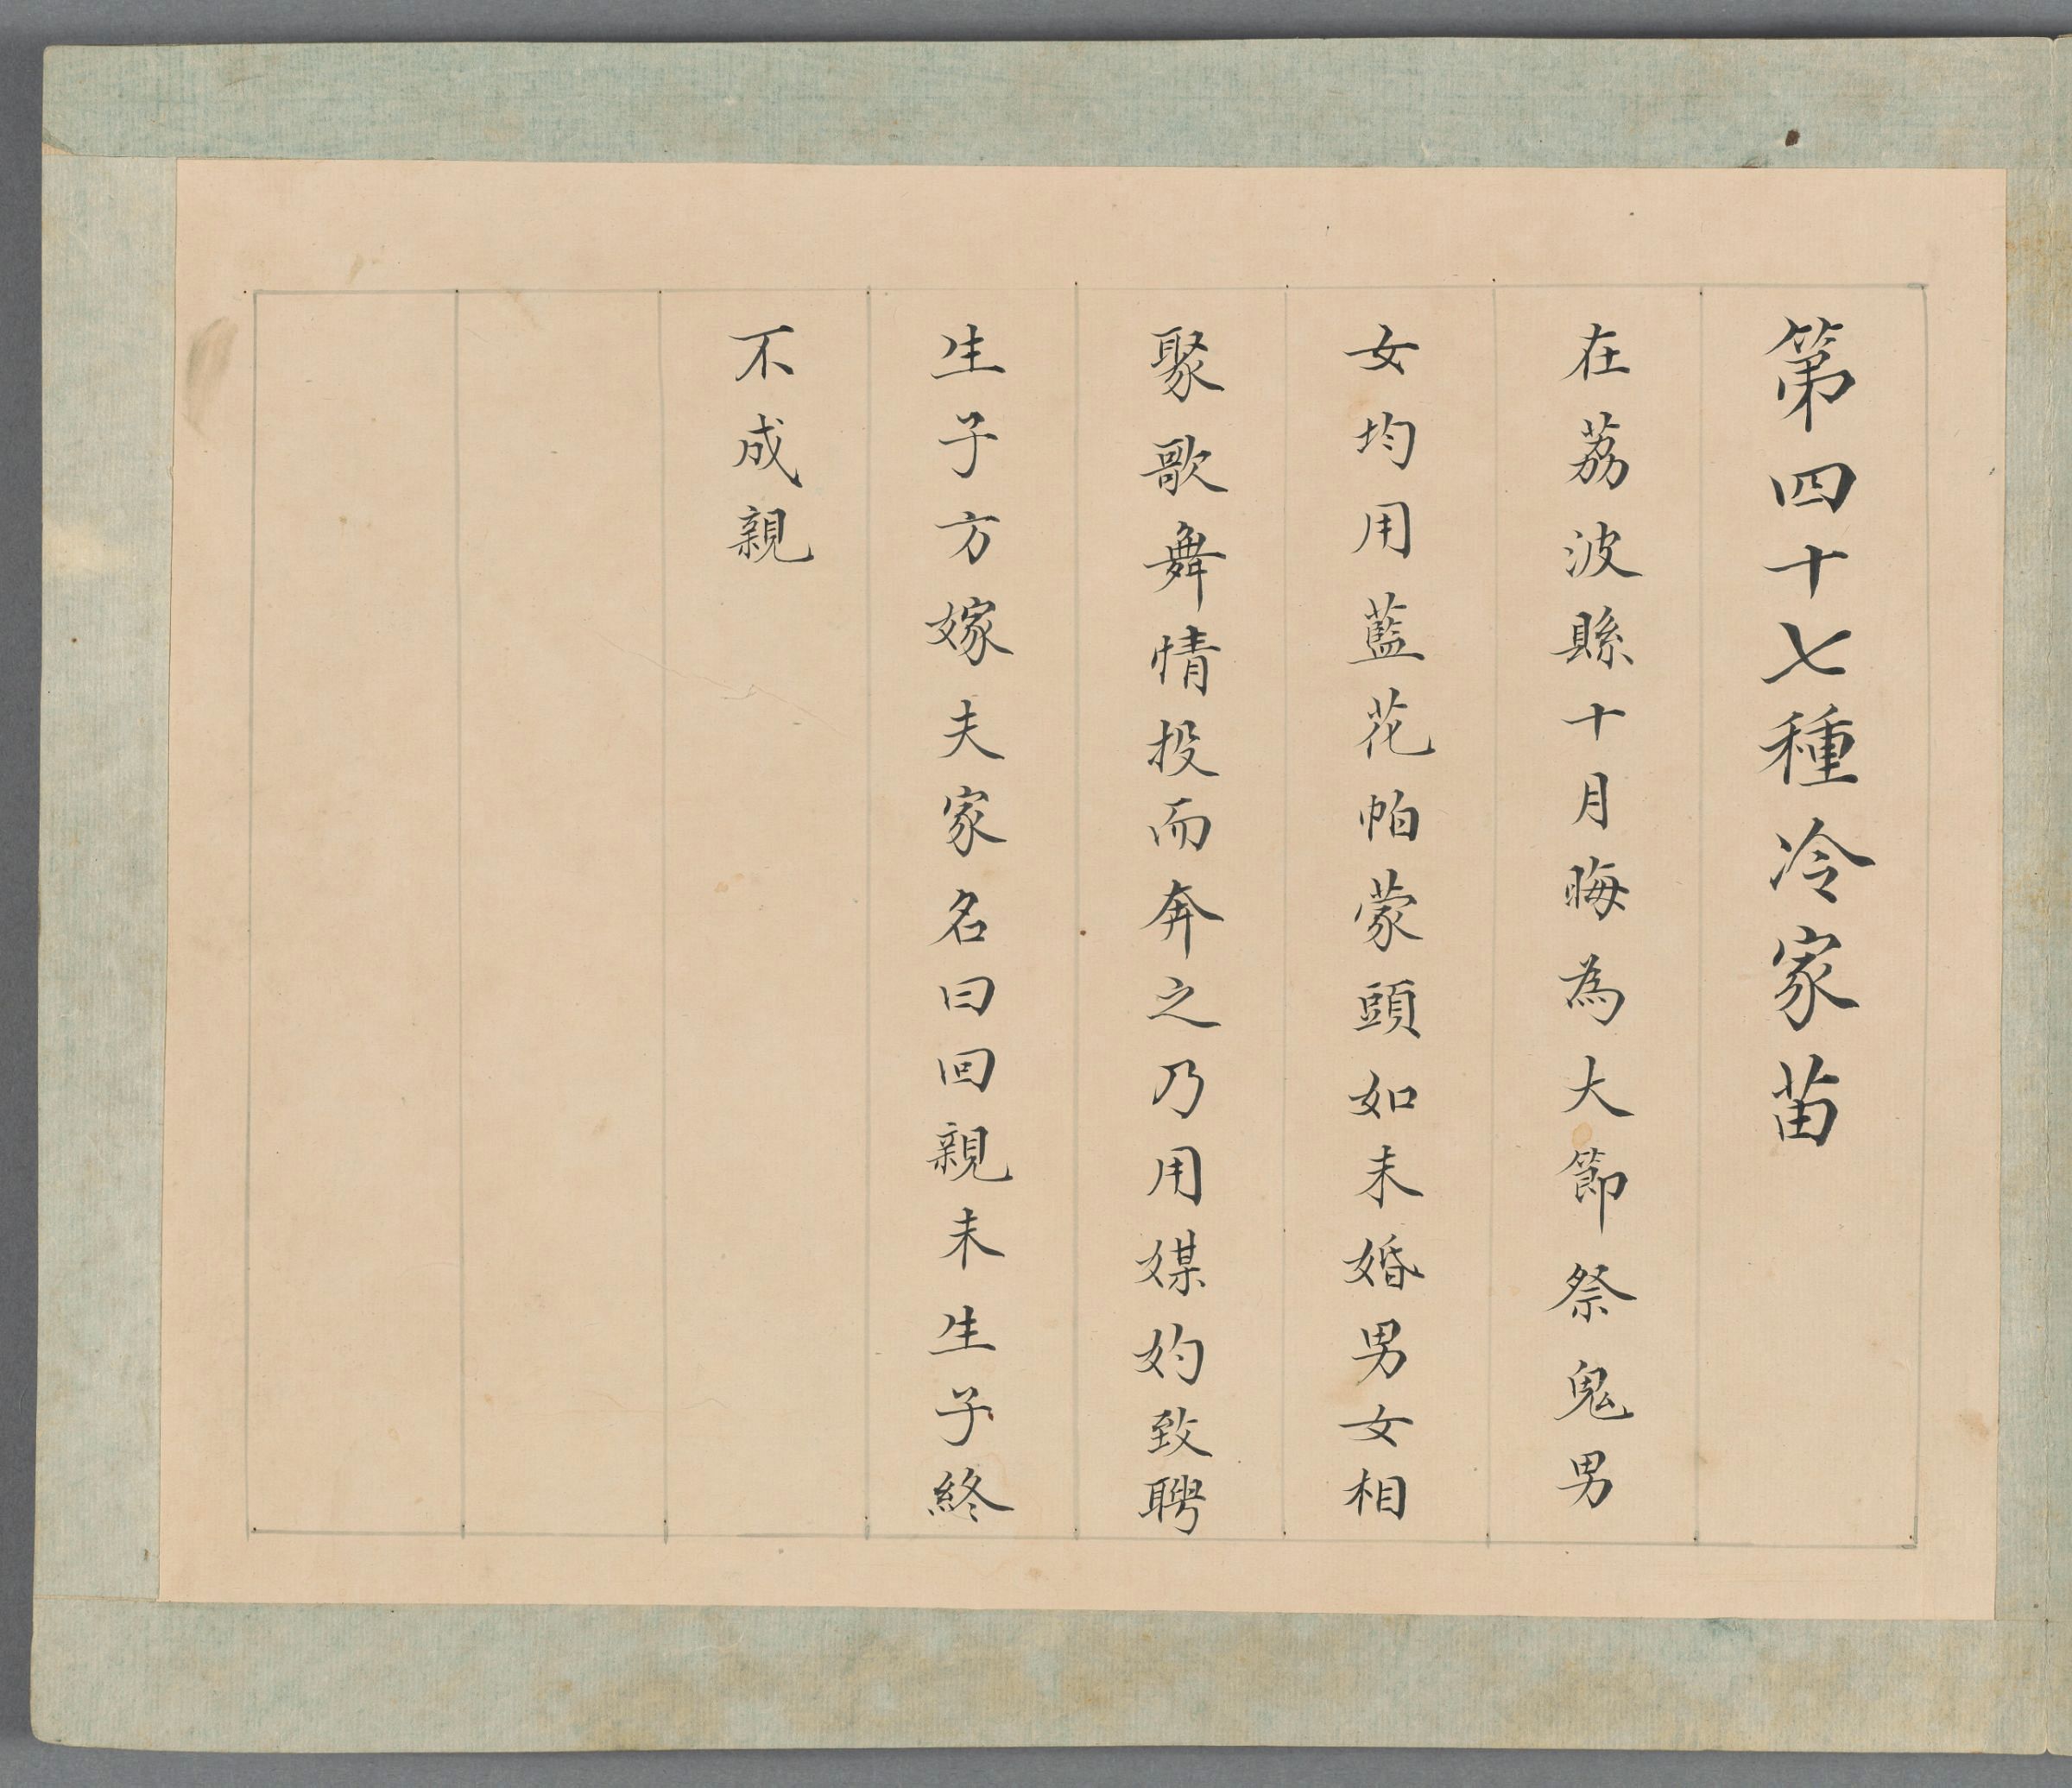 第四十七種冷家苗
在荔波縣十月晦為大節祭鬼男
女均用藍花帕蒙頭如未婚男女相
聚歌舞情投而奔之乃用媒妁致聘
生子方嫁夫家名曰回親未生子終
不成親